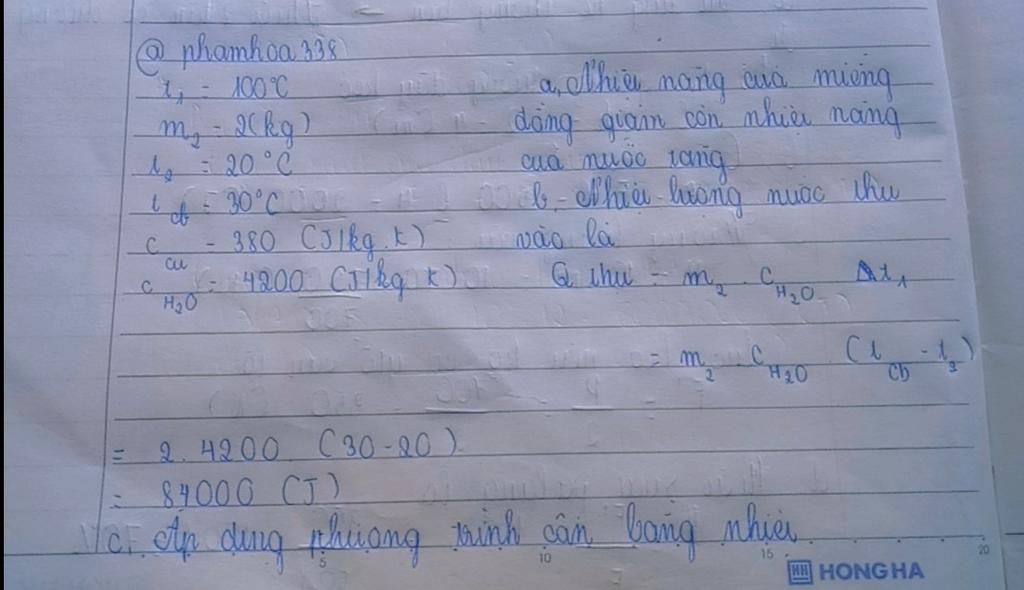 @ phamhoa338
t₁ = 100°C
a, Nhiệt năng của miếng
m₂ = 2(kg)
đồng giảm còn nhiệt năng
t₂ = 20°C
của nước tăng
t cb = 30°C
b, Nhiệt lượng nước thu
c Cu = 380 (J/kg.k)
vào là
c H₂O = 4200 (J/kg k)
Q thu = m₂ . C H₂O Δt₁
= m₂ . C H₂O (t cb - t₂)
= 2. 4200 (30-20)
= 84000 (J)
c. Áp dụng phương trình cân bằng nhiệt
5 10 15 20
HH HONG HA